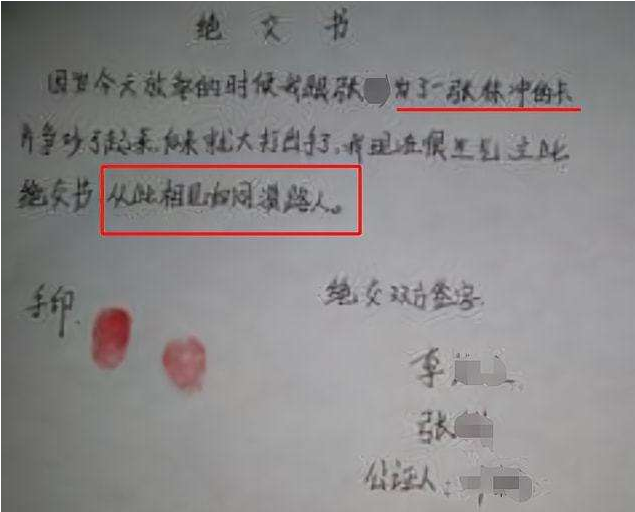 绝交书
因为今天放学的时候我跟张为了一张林冲的卡
片争吵了起来,后来就大打出手了,我现在很生气立此
绝交书,从此相见如同道路人。
手印.
绝交双方签字.
李
张
公证人: